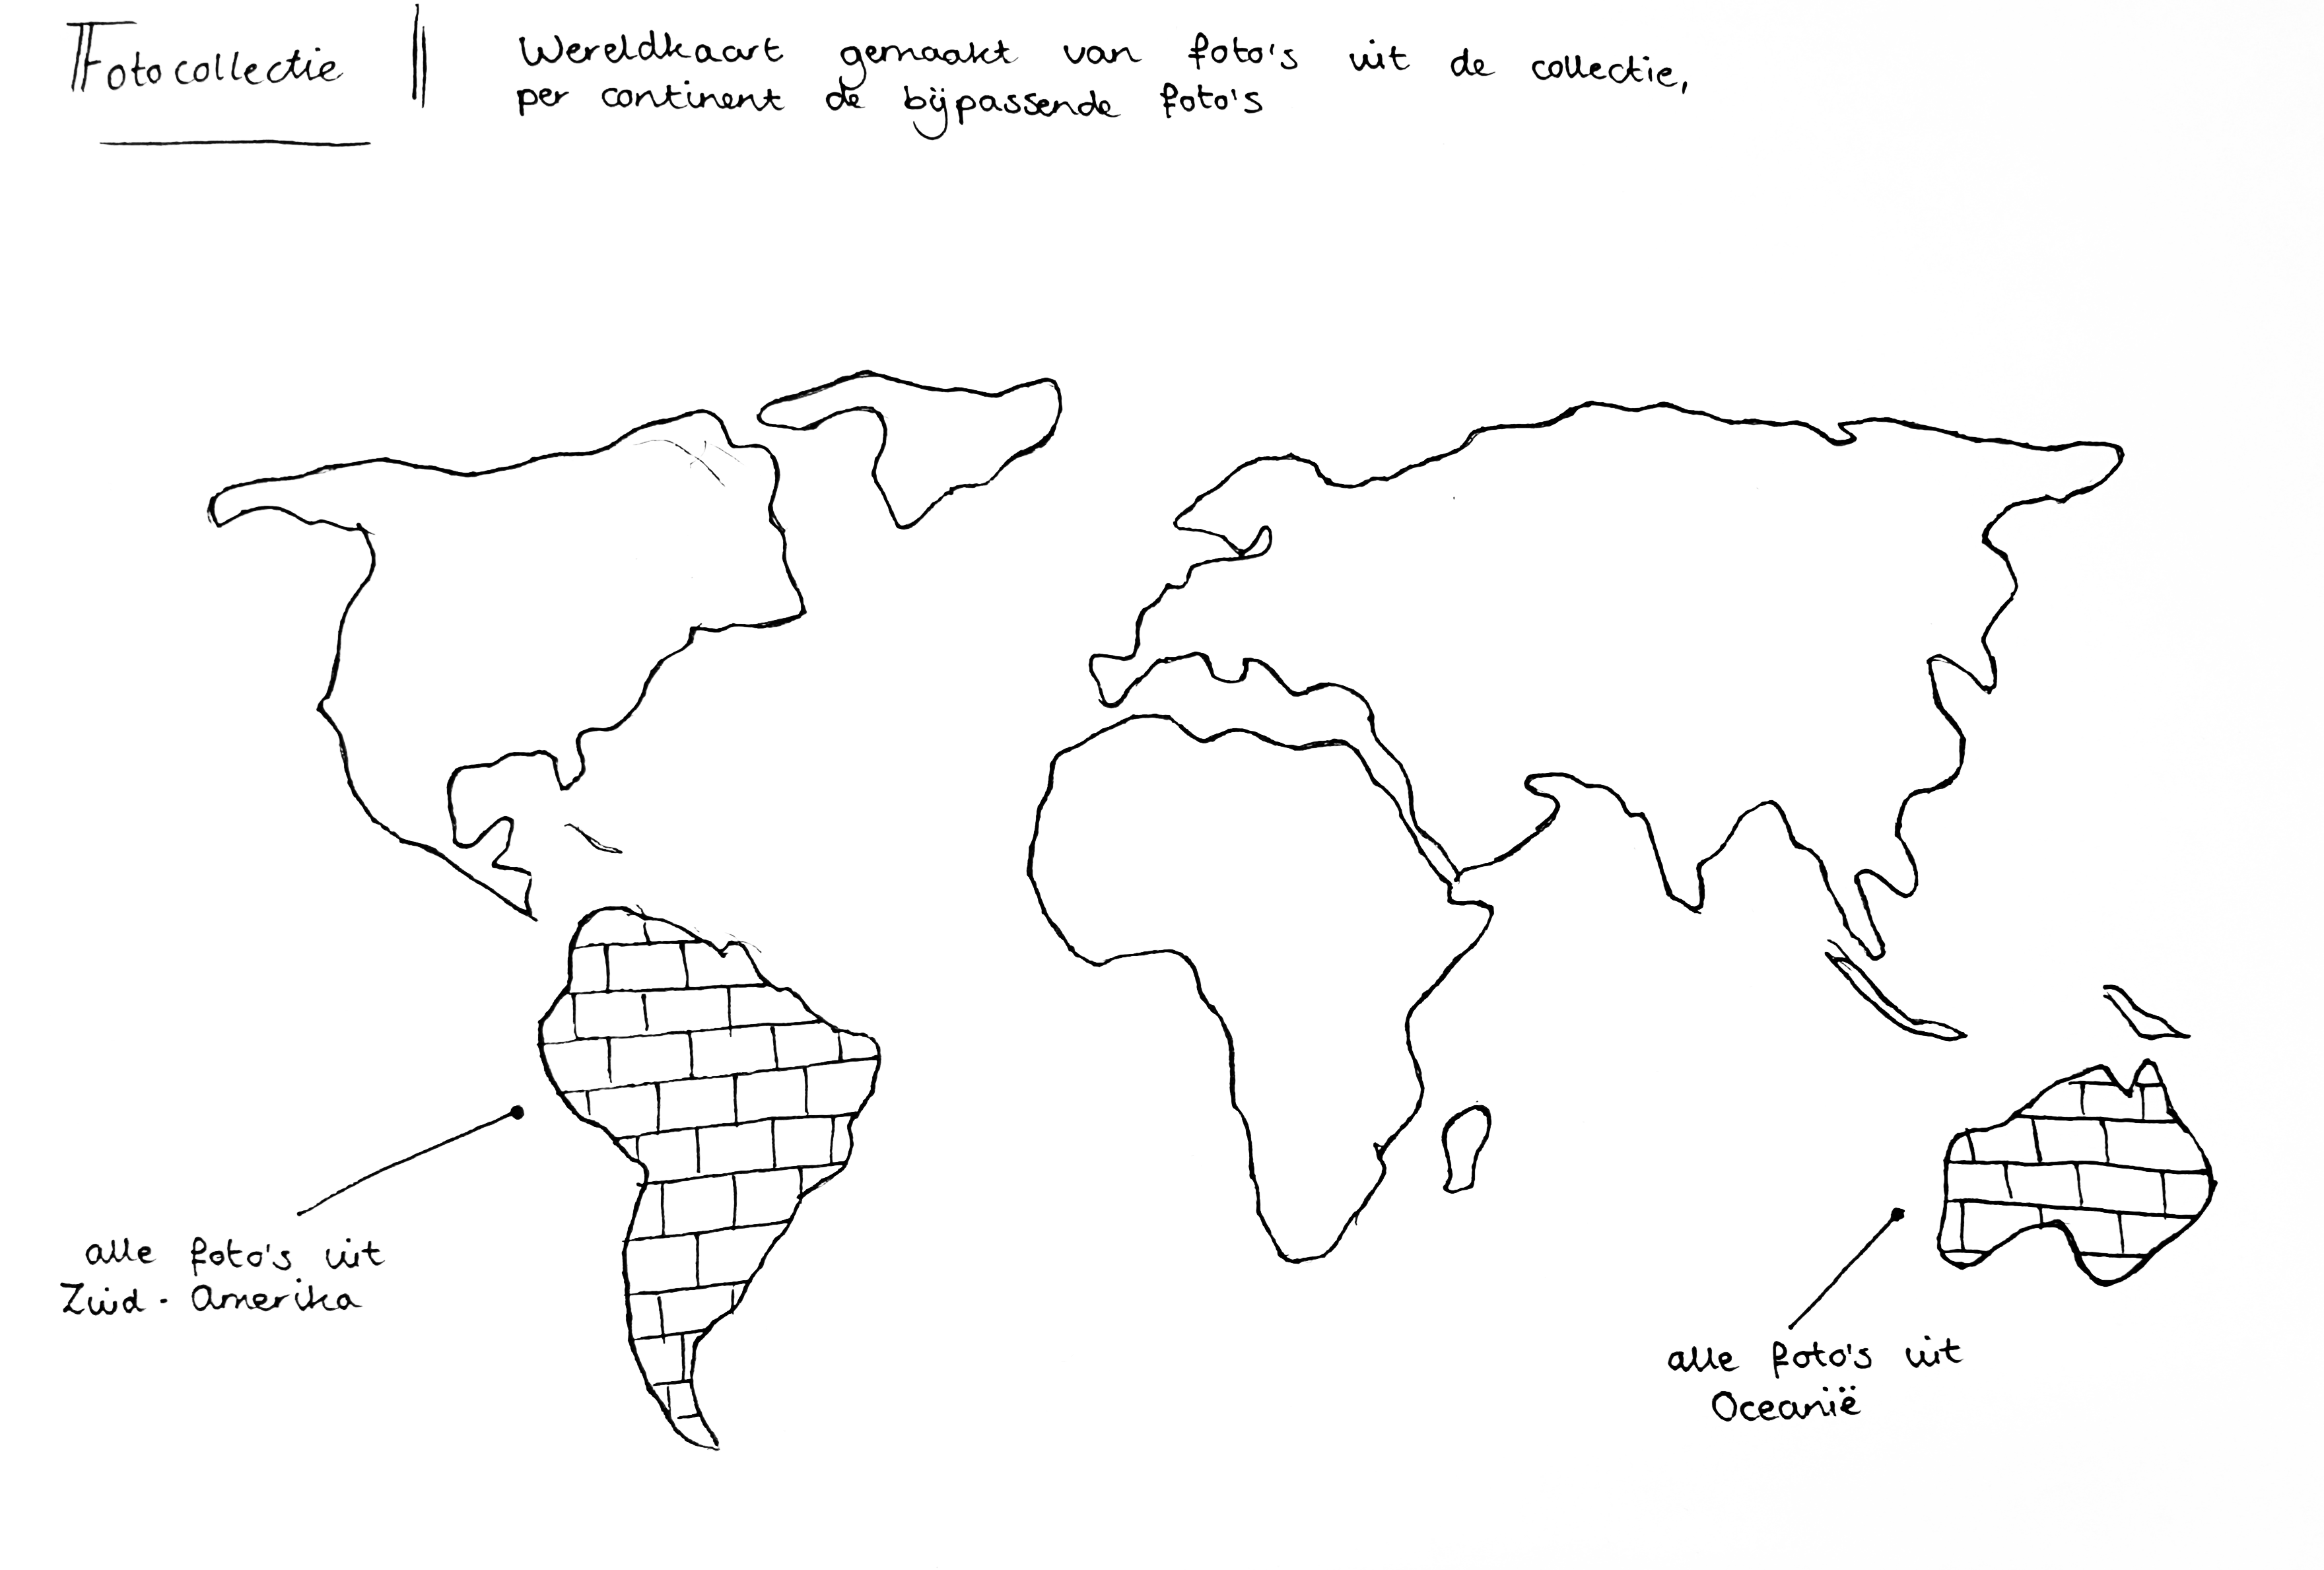 Fotocollectie
Wereldkaart gemaakt van foto's uit de collectie,
per continent de bijpassende foto's
alle foto's uit
Zuid-Amerika
alle foto's uit
Oceanië